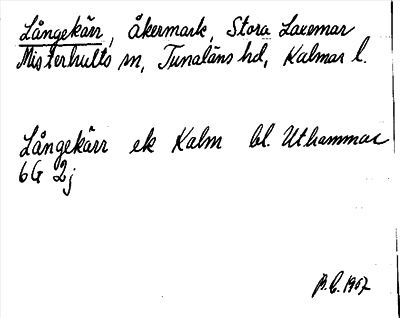 Långekärr, Åkermark, Stora Laxemar
Misterhults sn, Tunaläns hd, Kalmar l.
Långekärr ek Kalm bl. Uthammar
6G 2j
1967